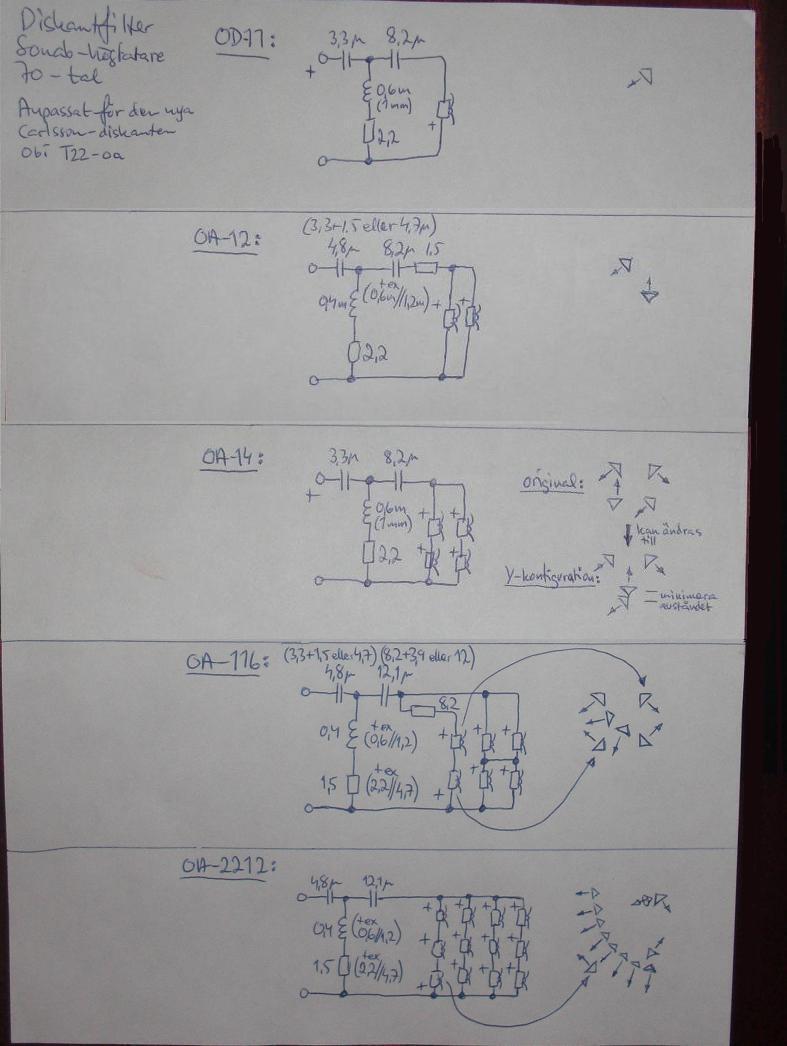 Diskantfilter
Sonab-högtalare
70-tal
Anpassat för den nya
Carlsson-diskanten
Obi T22-oa
OD-11:
3,3µ 8,2µ
+
0,6m
(1mm)
+
2,2
OA-12:
(3,3+1,5 eller 4,7µ)
4,8µ 8,2µ 1,5
0,4m (t ex 0,6m//1,2m) + +
2,2
OA-14:
3,3µ 8,2µ
+
0,6m
(1mm)
+ +
2,2
+ +
original:
kan ändras
till
Y-konfiguration:
minimera
avståndet
OA-116:
(3,3+1,5 eller 4,7) (8,2+3,9 eller 12)
4,8µ 12,1µ
8,2
0,4 (t ex 0,6//1,2)
+ + +
1,5 (t ex 2,2//4,7)
+ + +
OA-2212:
4,8µ 12,1µ
+ + + +
0,4 (t ex 0,6//1,2)
+ + + +
1,5 (t ex 2,2//4,7)
+ + + +